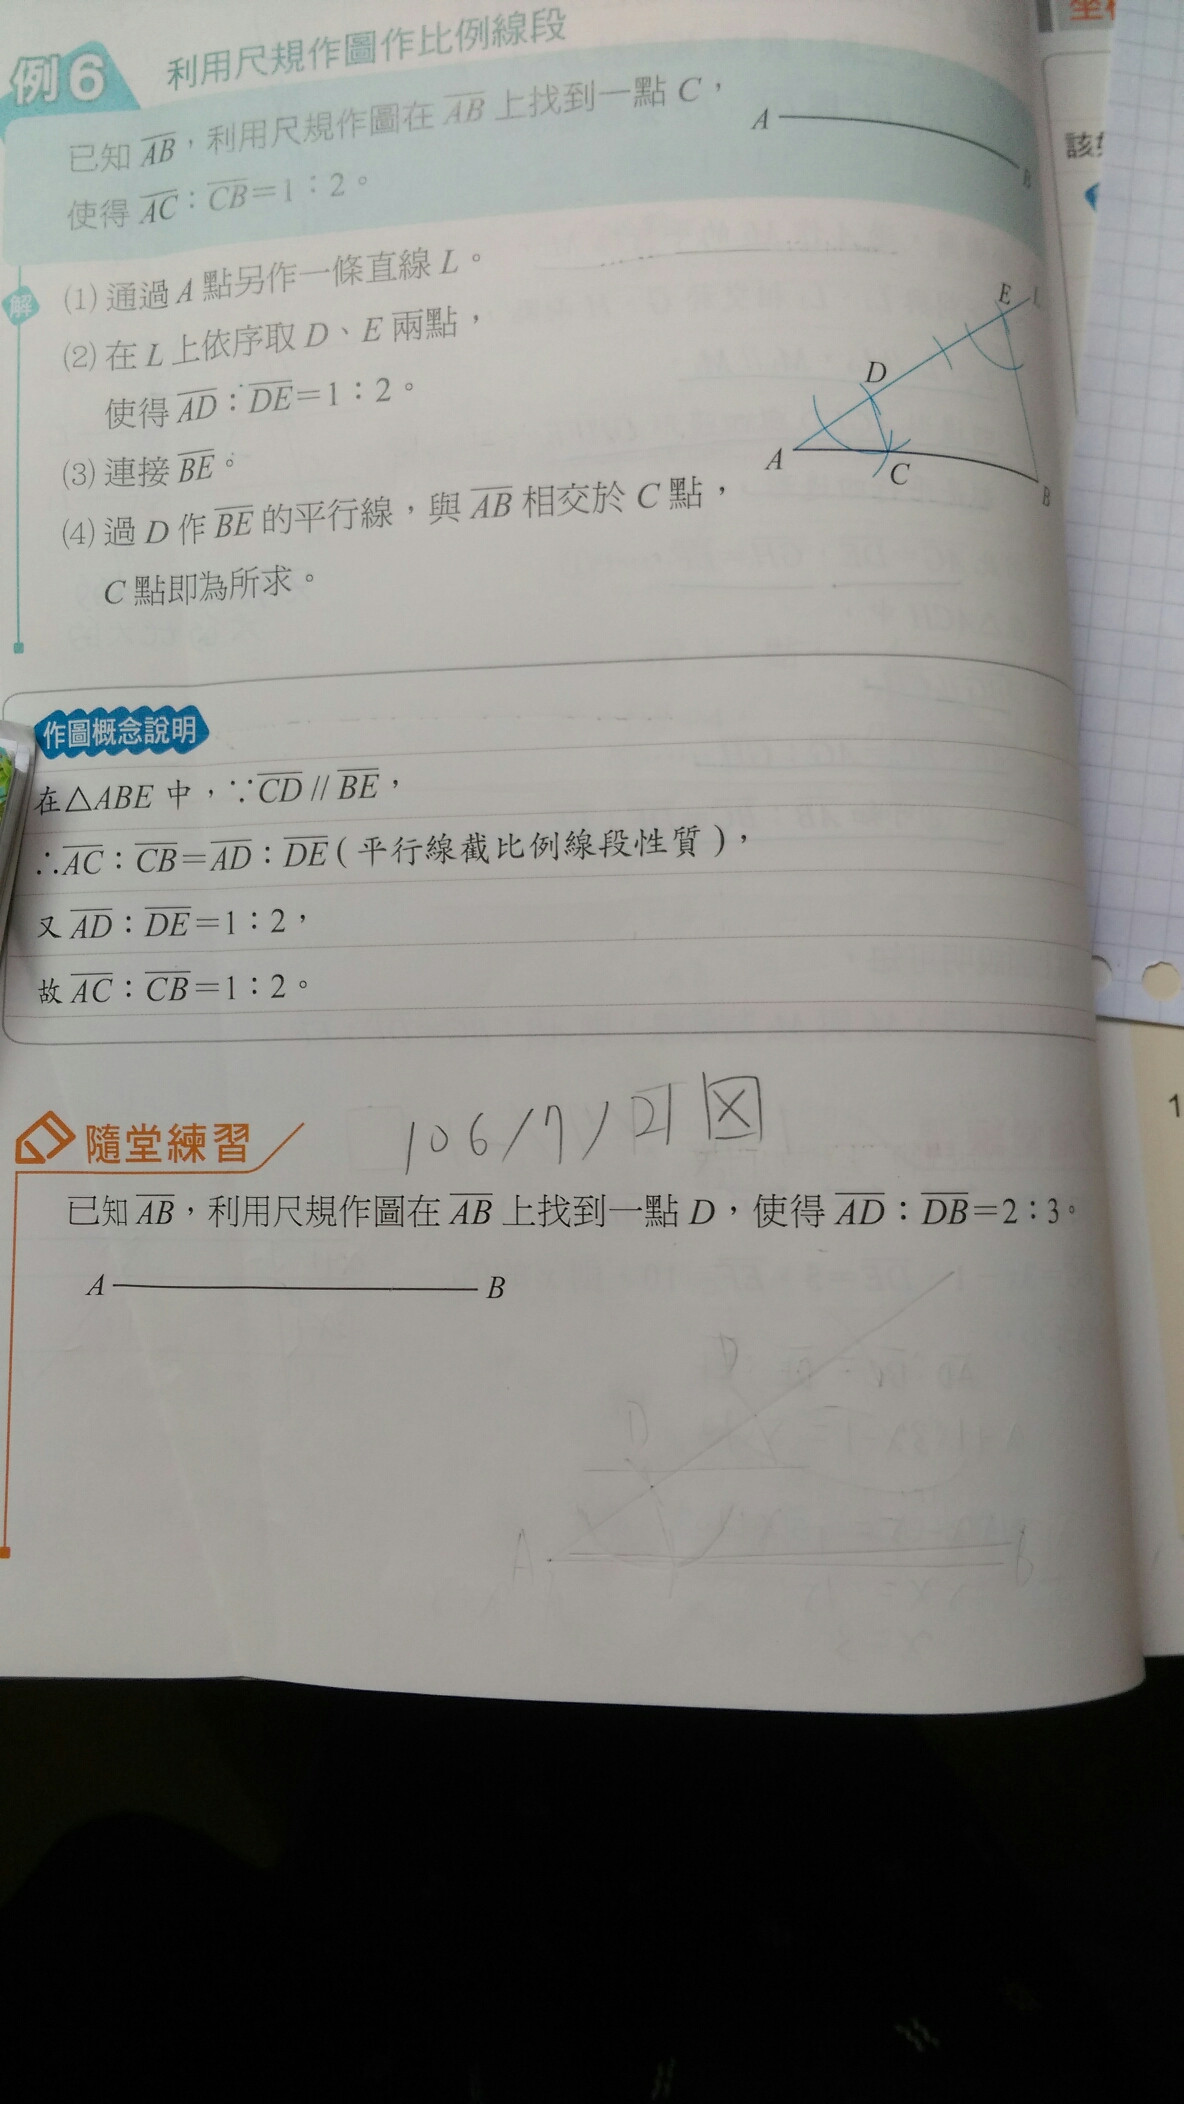 例6 利用尺規作圖作比例線段
已知 AB，利用尺規作圖在 AB 上找到一點 C，
使得 AC：CB=1：2。
A B
解
(1) 通過 A 點另作一條直線 L。
(2) 在 L 上依序取 D、E 兩點，
使得 AD：DE=1：2。
(3) 連接 BE。
(4) 過 D 作 BE 的平行線，與 AB 相交於 C 點，
C 點即為所求。
E L
D
A C B
作圖概念說明
在△ABE 中，∵CD // BE，
∴AC：CB=AD：DE（平行線截比例線段性質），
又 AD：DE=1：2，
故 AC：CB=1：2。
隨堂練習
106/7/
已知 AB，利用尺規作圖在 AB 上找到一點 D，使得 AD：DB=2：3。
A B
D
A B
該
1